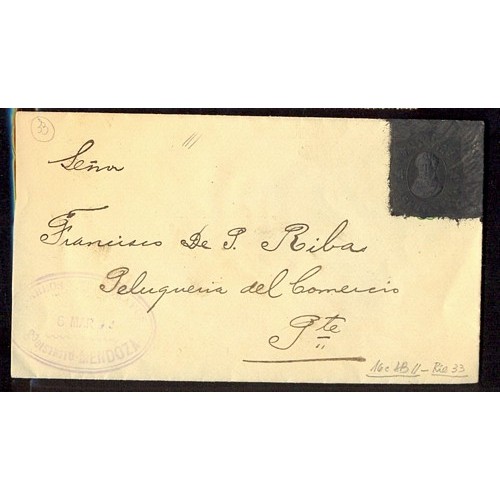 33
Señor
Francisco De P. Ribas
Peluqueria del Comercio
Pte
6 MAR
MENDOZA
16c AB II - Rie 33